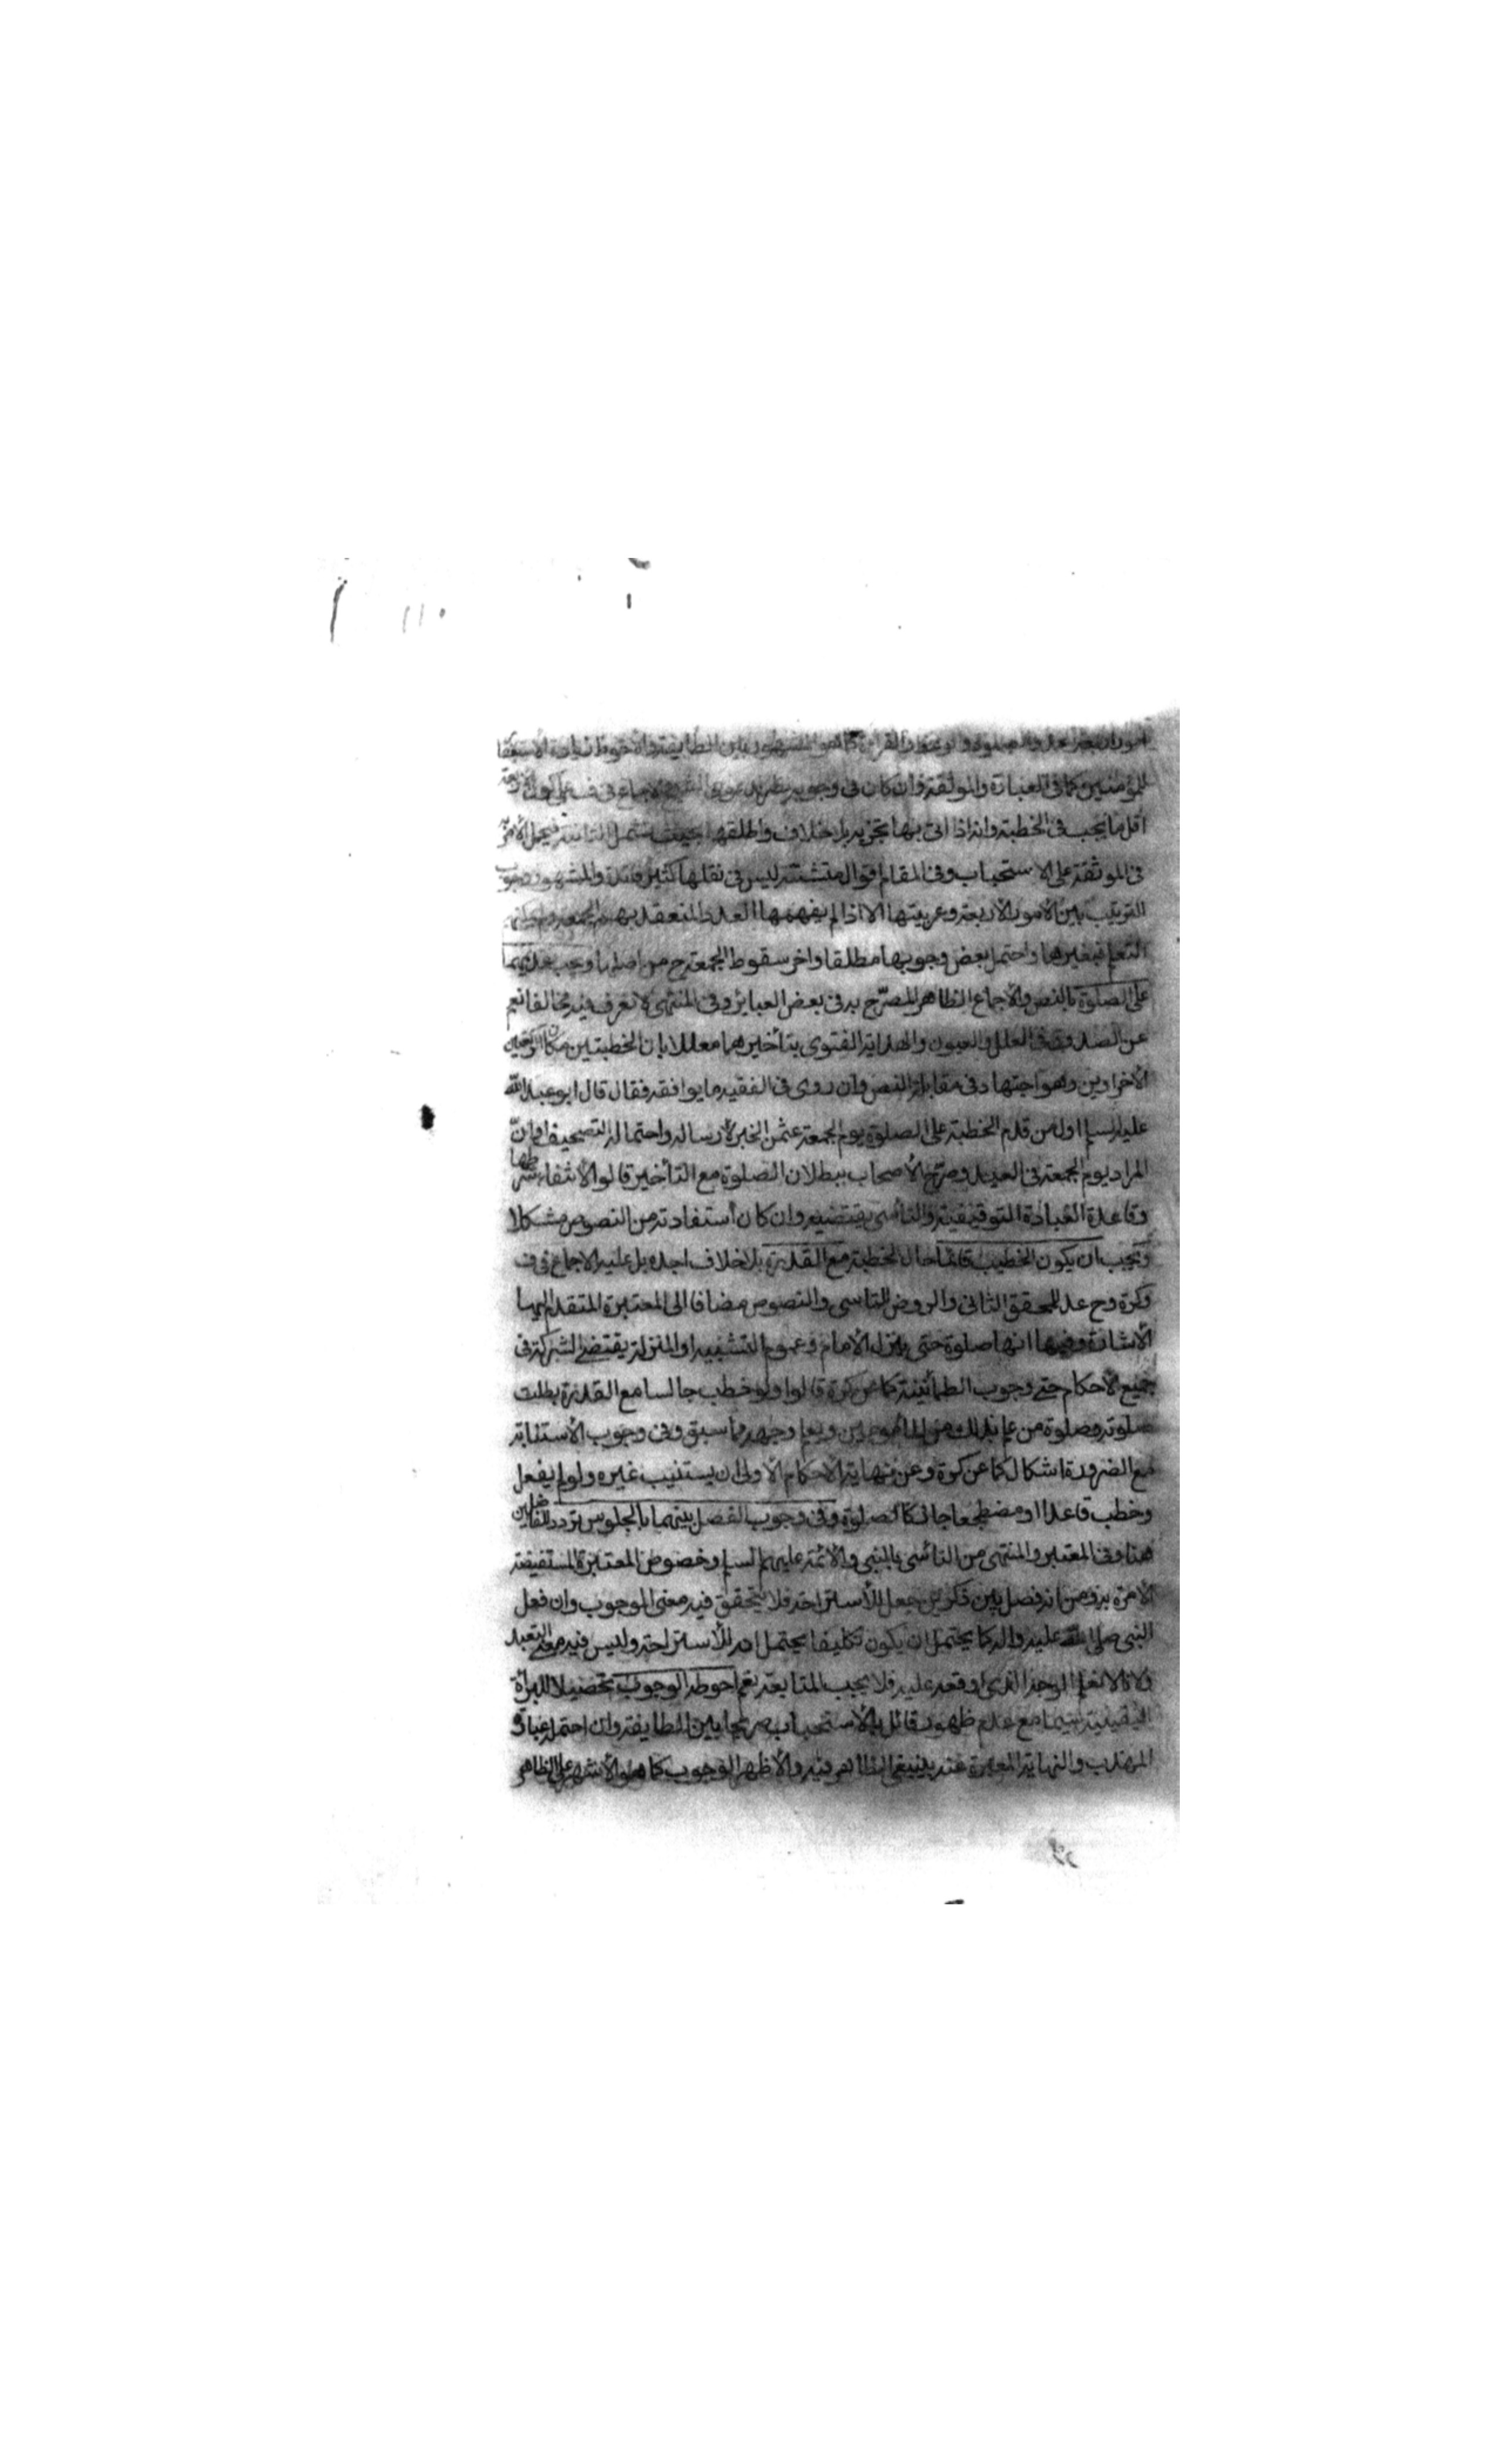 والصلوة والوعظ والقراءة كما هو المشهور بين الطايفة والاحوط زيادة الاستغفار
للمؤمنين كما فى العبارة والموثقة وان كان فى وجوبه نظر الاجماع فى ف على كون الاربعة
اقل ما يجب فى الخطبة وانه اذا اتى بها تجزيه بلا خلاف واطلقها بحيث فيحمل الامر به
فى الموثقة على الاستحباب وفى المقام اقوال متشتتة ليس فى نقلها كثير فائدة والمشهور وجوب
الترتيب بين الامور الاربعة وعربيتها الا اذا لم يفهمها العدد المنعقد بهم الجمعة ولم يمكنهم
التعلم فبغيرها واحتمل بعض وجوبها مطلقا واخر سقوط الجمعة ح من اصلها ويجب تقديمهما
على الصلوة بالنص والاجماع الظاهر المصرّح به فى بعض العبائر وفى المنتهى لا نعرف فيه مخالفا نعم
عن الصدوق فى العلل والعيون والهداية الفتوى بتأخيرهما معللا بان الخطبتين مكان الركعتين
الاخراوين وهو اجتهاد فى مقابلة النص وان روى فى الفقيه ما يوافقه فقال قال ابو عبد الله
عليه السلم اول من قدم الخطبة على الصلوة يوم الجمعة عثمن الخبر لارساله واحتماله التصحيف او انّ
المراد يوم الجمعة فى العيد وصرّح الاصحاب ببطلان الصلوة مع التأخير قالوا لانتفاء شرطها
وقاعدة العبادة التوقيفية والتأسى يقتضيه وان كان استفادته من النصوص مشكلا
ويجب ان يكون الخطيب قائما حال الخطبة مع القدرة بلا خلاف اجده بل عليه الاجماع فى ف
وكرة وح عد للمحقق الثانى والروض للتاسى والنصوص مضافا الى المعتبرة المتقدم اليها
الاشارة وفيها انها صلوة حتى ينزل الامام وعموم التشبيه او المنزلة يقتضى الشركة فى
جميع الاحكام حتى وجوب الطمأنينة كما عن كرة قالوا ولو خطب جالسا مع القدرة بطلت
صلوته وصلوة من علم بذلك من المأمومين ويعلم وجهه مما سبق وفى وجوب الاستنابة
مع الضرورة اشكال كما عن كرة وعن نهاية الاحكام الاولى ان يستنيب غيره ولو لم يفعل
وخطب قاعدا او مضطجعا جاز كالصلوة وفى وجوب الفصل بينهما بالجلوس تردد للفاضلين
هنا وفى المعتبر والمنتهى من التأسى بالنبى والائمة عليهم السلم وخصوص المعتبرة المستفيضة
الامرة به ومن انه فصل بين ذكرين جعل للاستراحة فلا يتحقق فيه معنى الوجوب وان فعل
النبى صلى الله عليه واله كما يحتمل ان يكون تكليفا يحتمل انه للاستراحة وليس فيه معنى التعبد
ولانا لا نعلم الوجه الذى اوقعه عليه فلا يجب المتابعة نعم احوطه الوجوب تحصيلا للبرائة
اليقينية سيما مع عدم ظهور قائل بالاستحباب صريحا بين الطايفة وان احتمله عبارة
المهذب والنهاية المعبرة عنه بينبغى الظاهر فيه والاظهر الوجوب كما هو الاشهر على الظاهر